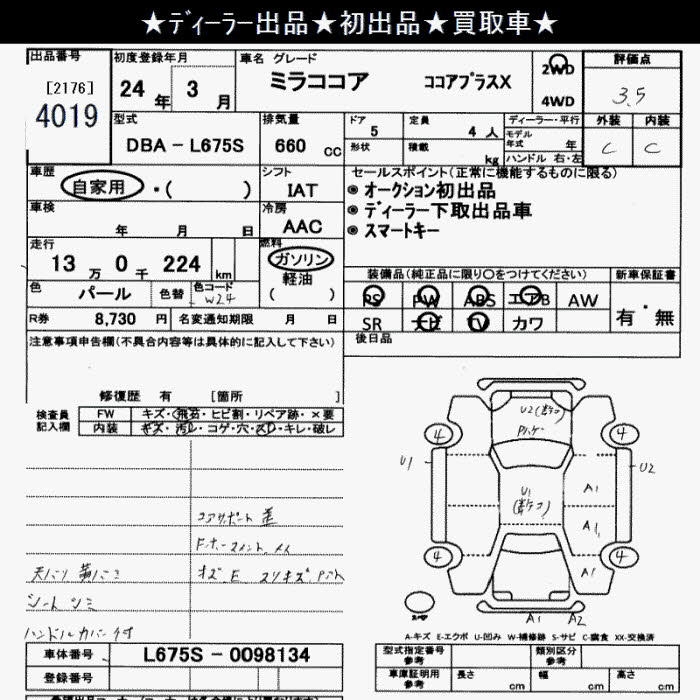 ★ディーラー出品★初出品★買取車★
出品番号
[2176]
4019
初度登録年月
24年 3月
車名 グレード
ミラココア ココアプラスX
2WD
4WD
評価点
3.5
外装 内装
C C
型式
DBA-L675S
排気量
660 cc
ドア
5
定員
4 人
形状
積載
kg
ディーラー・平行
モデル年式 年
ハンドル 右・左
車歴
自家用・( )
シフト
IAT
セールスポイント(正常に機能するものに限る)
オークション初出品
ディーラー下取出品車
スマートキー
車検
年 月 日
冷房
AAC
走行
13万0千224 km
燃料
ガソリン
軽油
( )
色
パール
色替
色コード
W24
装備品(純正品に限り○をつけてください)
PS PW ABS エアB AW
SR ナビ TV カワ
新車保証書
有・無
R券 8,730 円
名変通知期限 月 日
後日品
注意事項申告欄(不具合内容等は具体的に記入して下さい)
修復歴 有 [箇所 ]
検査員記入欄
FW キズ・飛石・ヒビ割・リペア跡・×要
内装 キズ・汚レ・コゲ・穴・スレ・キレ・破レ
コアサポート 歪
シート シミ
ハンドルカバー付
U2
4 4
U1 U2
U1
A1
A1
4 4
A1
A1 A2
A-キズ E-エクボ U-凹み W-補修跡 S-サビ C-腐食 XX-交換済
車体番号 L675S-0098134
登録番号
型式指定番号 参考
類別区分 参考
車庫証明用 参考
長さ cm 幅 cm 高さ cm